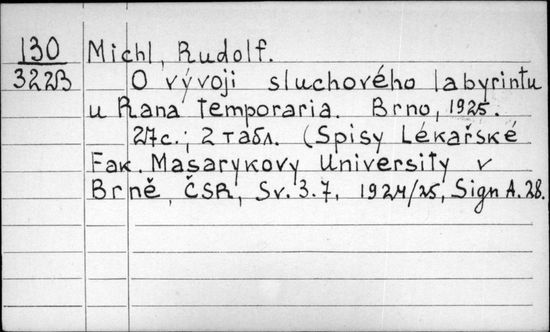 130 Michl, Rudolf.
322В О vývoji sluchového labyrintu
u Rana temporaria. Brno, 1925.
27с.; 2 табл. (Spisy Lékařské
Fak. Masarykovy University v
Brně, ČSR, Sv. 3.7, 1924/25, Sign A.28.